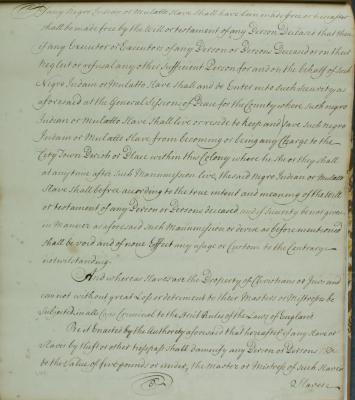 If any Negro Indian or Mulatto Slave shall have been made free or hereafter
shall be made free by the Will or testament of any Person Deceased that then
if any Executor or Executors of any Person or Persons Deceased or on their
Neglect or refusal any other Sufficient Person for and on the behalf of such
Negro Indian or Mulatto Slave shall and do Enter into such security as
aforesaid at the General Sessions of Peace for the County where such negro
Indian or Mulatto Slave shall live or reside to keep and save such Negro
Indian or Mulatto Slave from becoming or being any Charge to the
City Town Parish or Place within this Colony where he she or they shall
at any time after such Manumission live, the said Negro Indian or Mulatto
Slave shall be free according to the true intent and meaning of the Will
or testament of any Person or Persons deceased and if security be not given
in Manner as aforesaid such Manumission or devise as before mentioned
shall be void and of none Effect any usage or Custom to the Contrary
notwithstanding.
And whereas Slaves are the Property of Christians or Jews and
cannot without great Loss or detriment to their Masters or Mistresses be
Subjected in all Cases Criminal to the strict Rules of the Laws of England
Be it Enacted by the Authority aforesaid that hereafter if any Slave or
Slaves by theft or other trespass shall damnify any Person or Persons
to the Value of five pounds or under, the Master or Mistress of such Slave or
Slaves